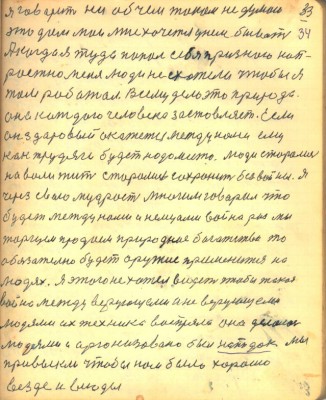 я говорит ни об чем таком не думаю 33
это дом мой мне хочется у нем бывать 34
А когда я туда попал себя признал нап-
растно меня люди не схотели чтобы я
там работал. Всему дело это природа.
она каждого человека заставляет. Если
он здаровый окажется между нами ему
как трудяге будет надо место. Люди старалися
на воли жить старалися сохранить без войны. Я
через свою мудрость многим говарил что
будет между нами и немцами война раз мы
торгуем продаем природные багатства то
обязательно будет оружие применится на
людях. Я этого не хотел видеть чтобы такая
война между верующими и не верующими
людями их техника встрела она делалась
людями и организовано был нападок мы
привыкли чтобы нам было хорошо
везде и всюды